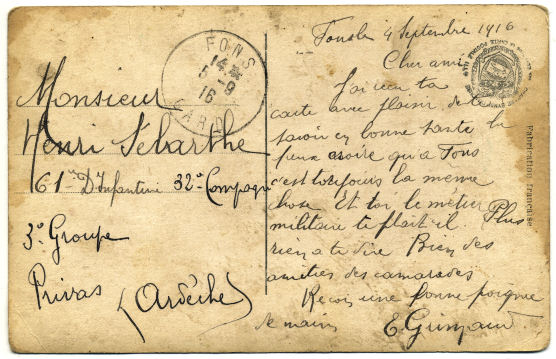 FONS
14
5-9
16
GARD
Monsieur
Henri Lebarthe
61e D'Infanterie 32e Compagnie
3e Groupe
Privas
(Ardèche)
Fons le 4 Septembre 1916
Cher ami
J'ai reçu ta
carte avec plaisir de te
savoir en bonne santé tu
peux croire qu'a Fons
c'est toujours la même
chose Et toi le métier
militaire te plait-il. Plus
rien a te dire Bien des
amitiés des camarades
Reçois une bonne poignée
de mains E. Grimaud
Fabrication française